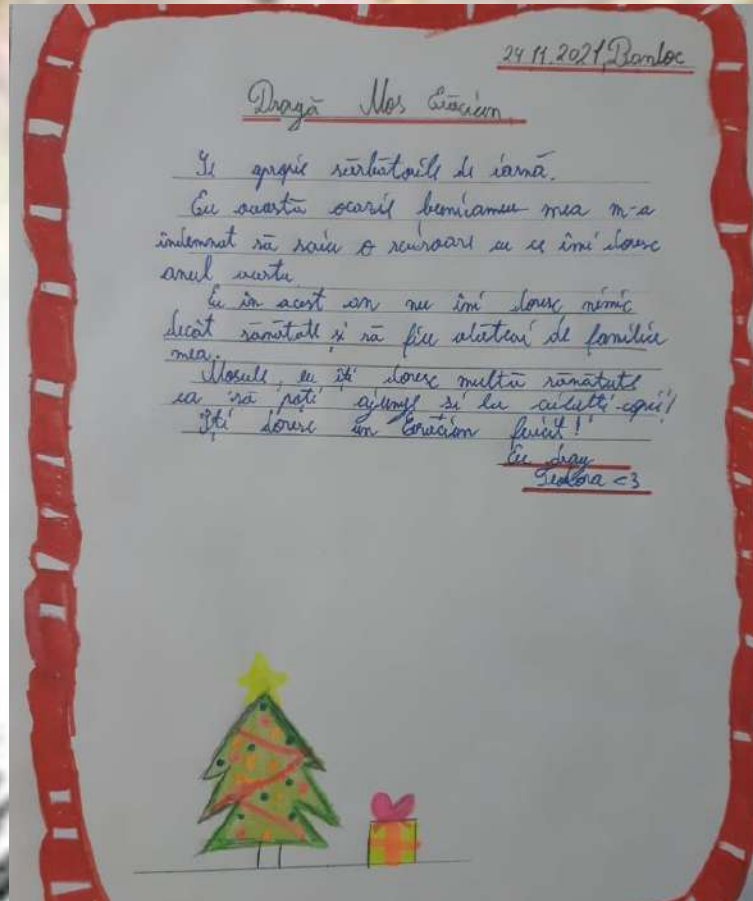 24.11.2021, Banloc
Dragă Mos Crăciun,
Se apropie sărbătorile de iarnă.
Cu această ocazie mea m-a
îndemnat să scriu o scrisoare cu ce îmi doresc
anul acesta.
Eu în acest an nu îmi doresc nimic
decât sănătate și să fiu alături de familia
mea.
Mosule, eu îți doresc multă sănătate
ca să poți ajunge si la ceilalti copii!
Iți doresc un Crăciun fericit!
Cu drag
Teodora <3